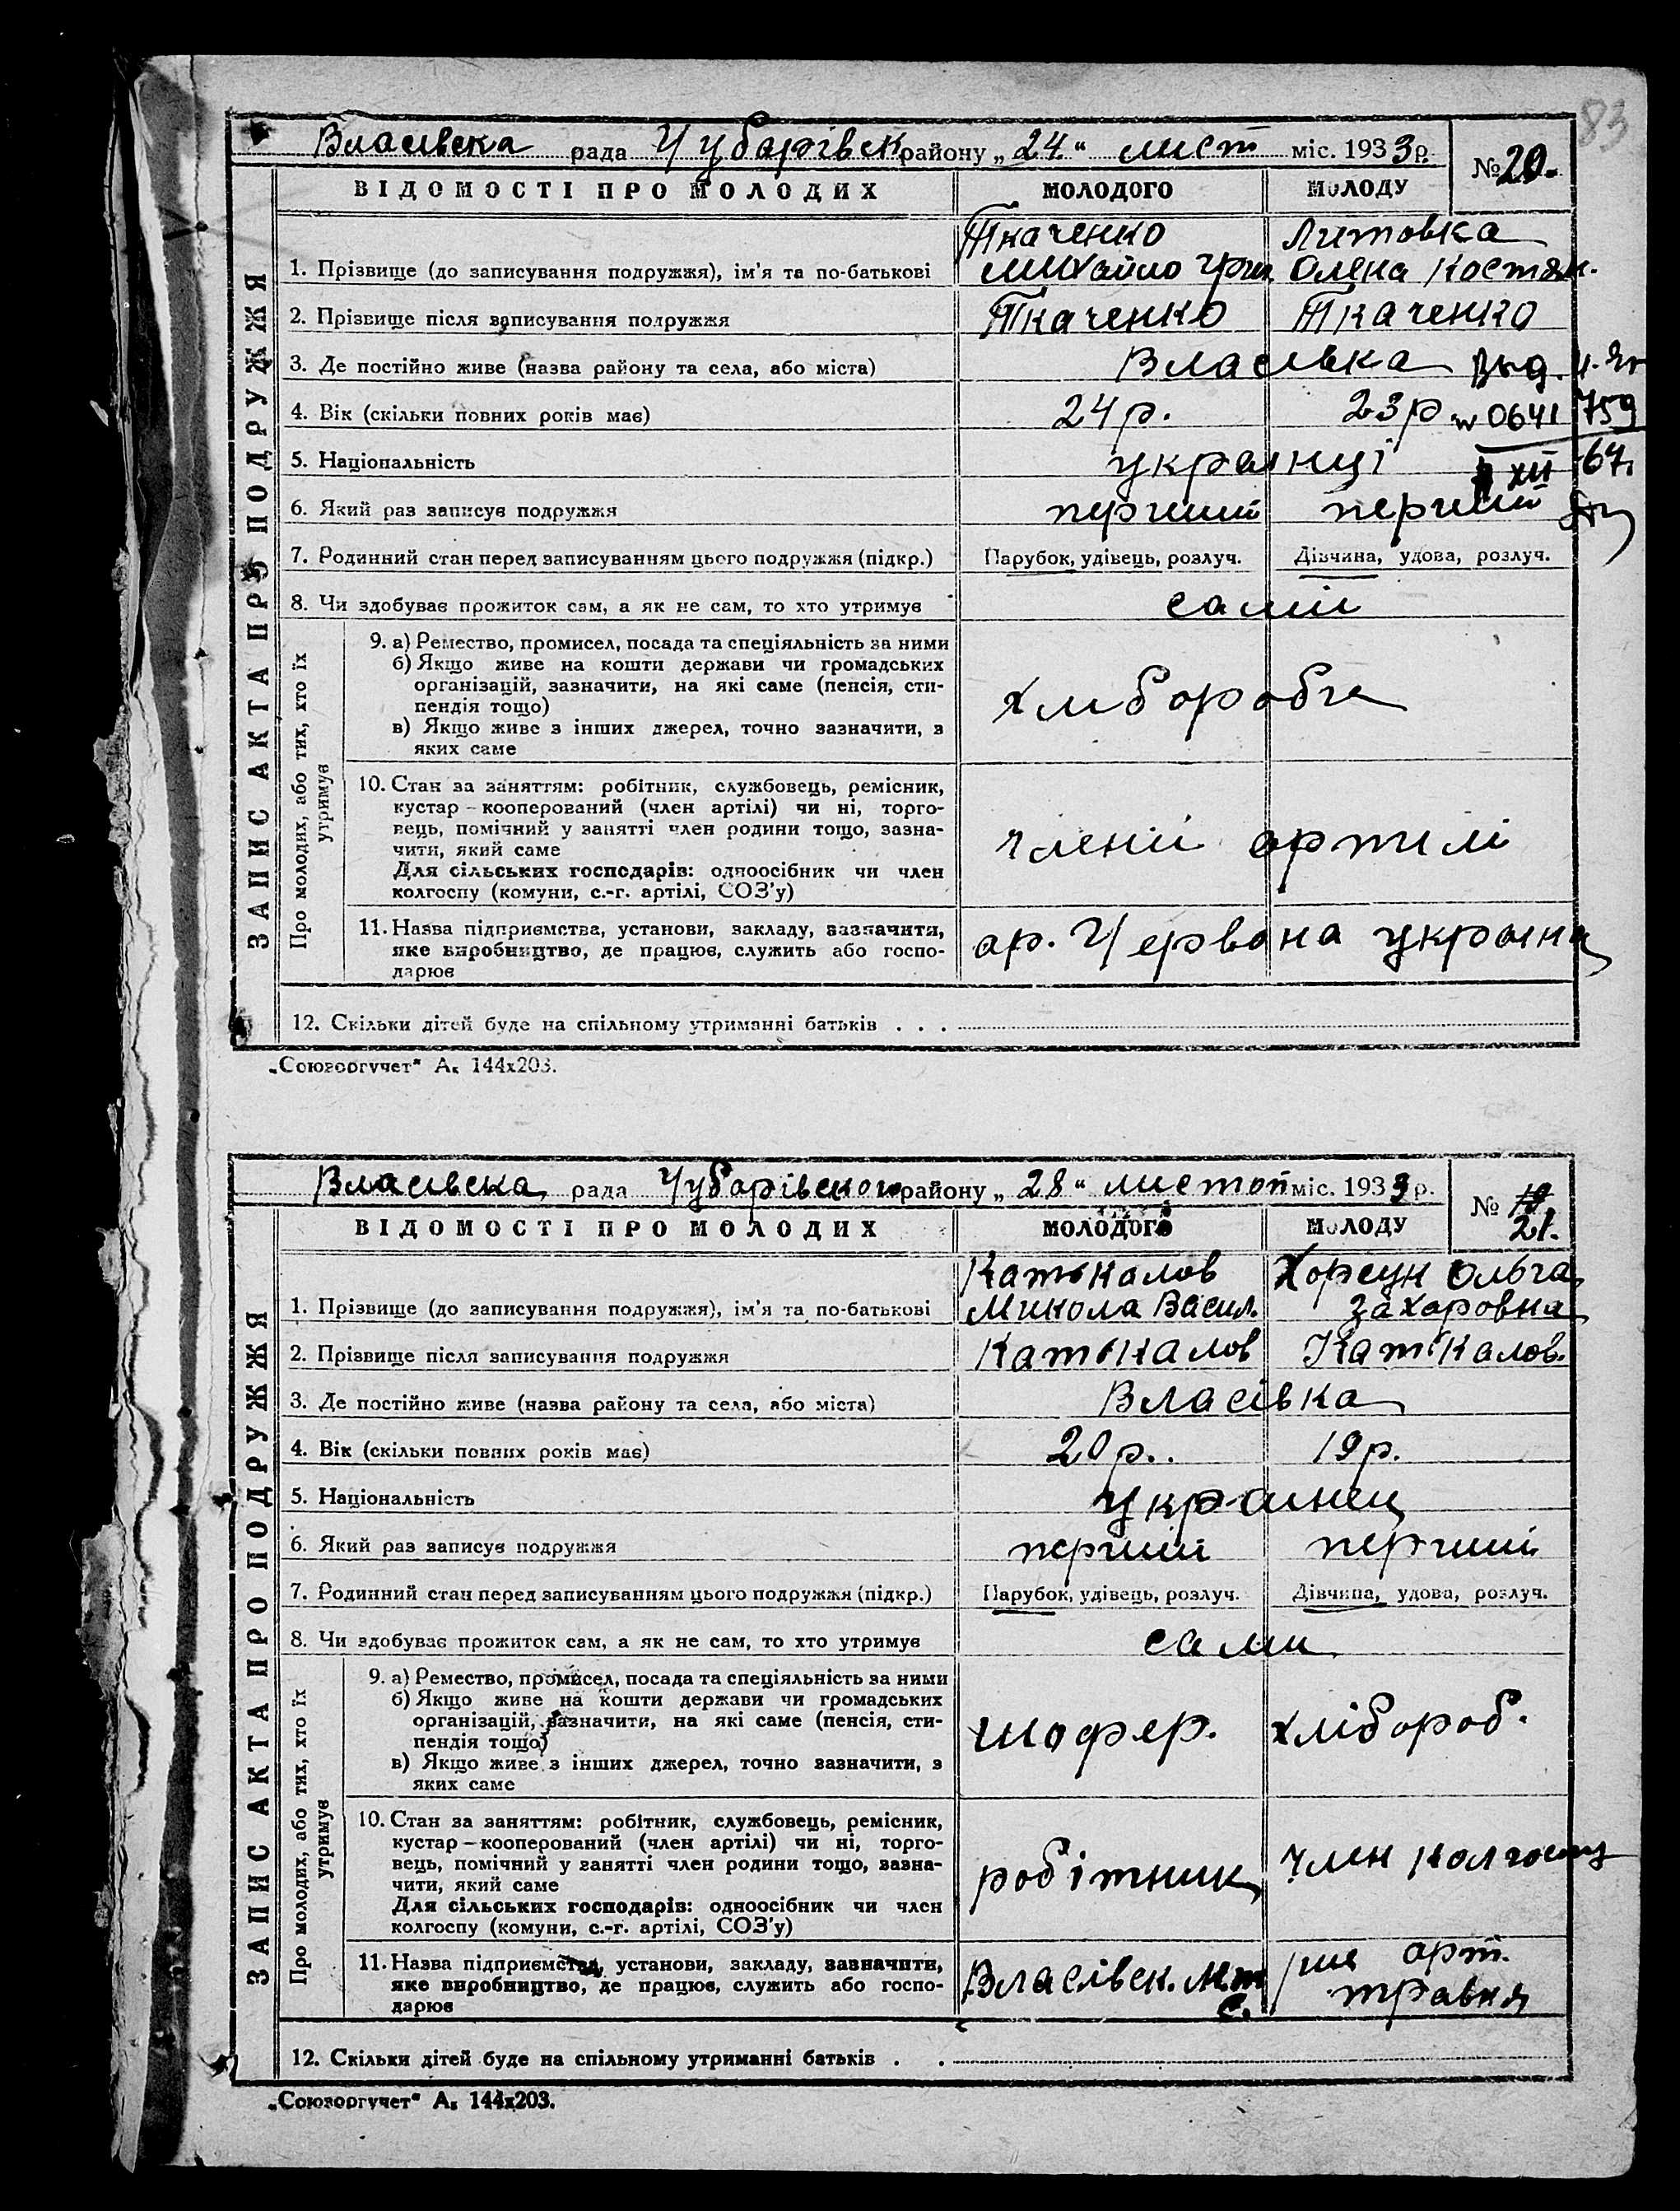 83
Власивска рада Чубарівск району „24“ лист міс. 1933 р. № 20.
ВІДОМОСТІ ПРО МОЛОДИХ МОЛОДОГО МОЛОДУ
ЗАПИС АКТА ПРО ПОДРУЖЖЯ
1. Прізвище (до записування подружжя), ім'я та по-батькові
Ткаченко Литовка
Михайло Олена Костян.
2. Прізвище після записування подружжя Ткаченко Ткаченко
3. Де постійно живе (назва району та села, або міста) Власивка
4. Вік (скільки повних років має) 24 р. 23 р № 0641 759
5. Національність украинці XII 67.
6. Який раз записує подружжя перший перший
7. Родинний стан перед записуванням цього подружжя (підкр.) Парубок, удівець, розлуч. Дівчина, удова, розлуч.
8. Чи здобуває прожиток сам, а як не сам, то хто утримує самии
Про молодих, або тих, хто їх
утримує
9. а) Ремество, промисел, посада та спеціяльність за ними
б) Якщо живе на кошти держави чи громадських
організацій, зазначити, на які саме (пенсія, сти-
пендія тощо)
в) Якщо живе з інших джерел, точно зазначити, з
яких саме
хлиборобы
10. Стан за заняттям: робітник, службовець, ремісник,
кустар – кооперований (член артілі) чи ні, торго-
вець, помічний у занятті член родини тощо, зазна-
чити, який саме
Для сільських господарів: одноосібник чи член
колгоспу (комуни, с.-г. артілі, СОЗ'у)
члении артилі
11. Назва підприємства, установи, закладу, зазначити,
яке виробництво, де працює, служить або госпо-
дарює
ар. Червона украина
12. Скільки дітей буде на спільному утриманні батьків . . .
„Союзоргучет“ А₅ 144х203.
Власивска рада Чубарівского району „28“ листоп міс. 1933 р. № 19
21.
ВІДОМОСТІ ПРО МОЛОДИХ МОЛОДОГО МОЛОДУ
ЗАПИС АКТА ПРО ПОДРУЖЖЯ
1. Прізвище (до записування подружжя), ім'я та по-батькові
Катькалов Хорсун Ольга
Микола Васил. Захаровна
2. Прізвище після записування подружжя Катькалов Катькалов.
3. Де постійно живе (назва району та села, або міста) Власівка
4. Вік (скільки повних років має) 20 р. 19 р.
5. Національність украинец
6. Який раз записує подружжя перший перший
7. Родинний стан перед записуванням цього подружжя (підкр.) Парубок, удівець, розлуч. Дівчина, удова, розлуч.
8. Чи здобуває прожиток сам, а як не сам, то хто утримує сами
Про молодих, або тих, хто їх
утримує
9. а) Ремество, промисел, посада та спеціяльність за ними
б) Якщо живе на кошти держави чи громадських
організацій, зазначити, на які саме (пенсія, сти-
пендія тощо)
в) Якщо живе з інших джерел, точно зазначити, з
яких саме
шофер. хлібороб.
10. Стан за заняттям: робітник, службовець, ремісник,
кустар – кооперований (член артілі) чи ні, торго-
вець, помічний у занятті член родини тощо, зазна-
чити, який саме
Для сільських господарів: одноосібник чи член
колгоспу (комуни, с.-г. артілі, СОЗ'у)
робітник член колгоспу
11. Назва підприємства, установи, закладу, зазначити,
яке виробництво, де працює, служить або госпо-
дарює
Власівск. М.т.с. арт.
травня
12. Скільки дітей буде на спільному утриманні батьків . .
„Союзоргучет“ А₅ 144х203.